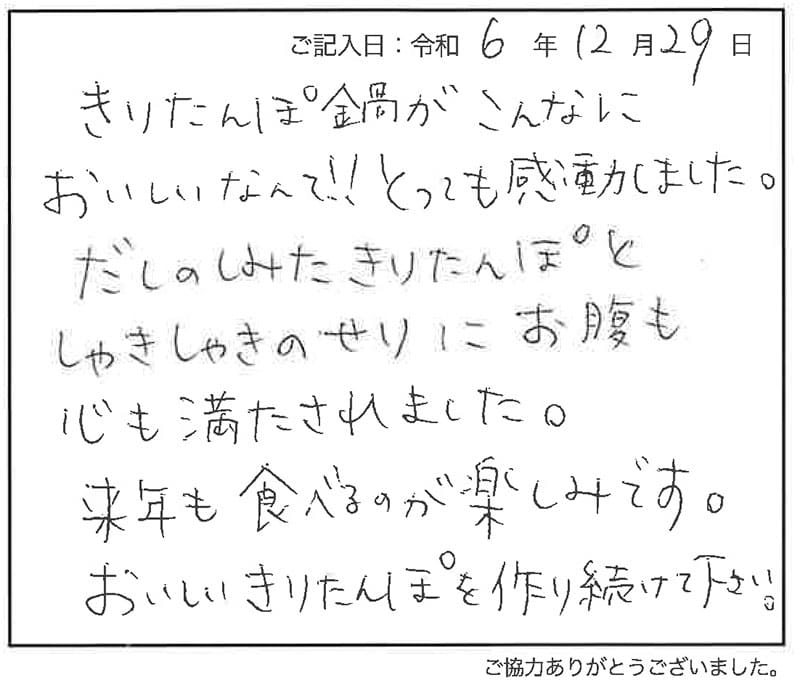 ご記入日：令和 6 年 12 月 29 日
きりたんぽ鍋が こんなに
おいしいなんて!! とっても感動しました。
だしのしみたきりたんぽと
しゃきしゃきのせりに お腹も
心も満たされました。
来年も食べるのが楽しみです。
おいしいきりたんぽを作り続けて下さい。
ご協力ありがとうございました。